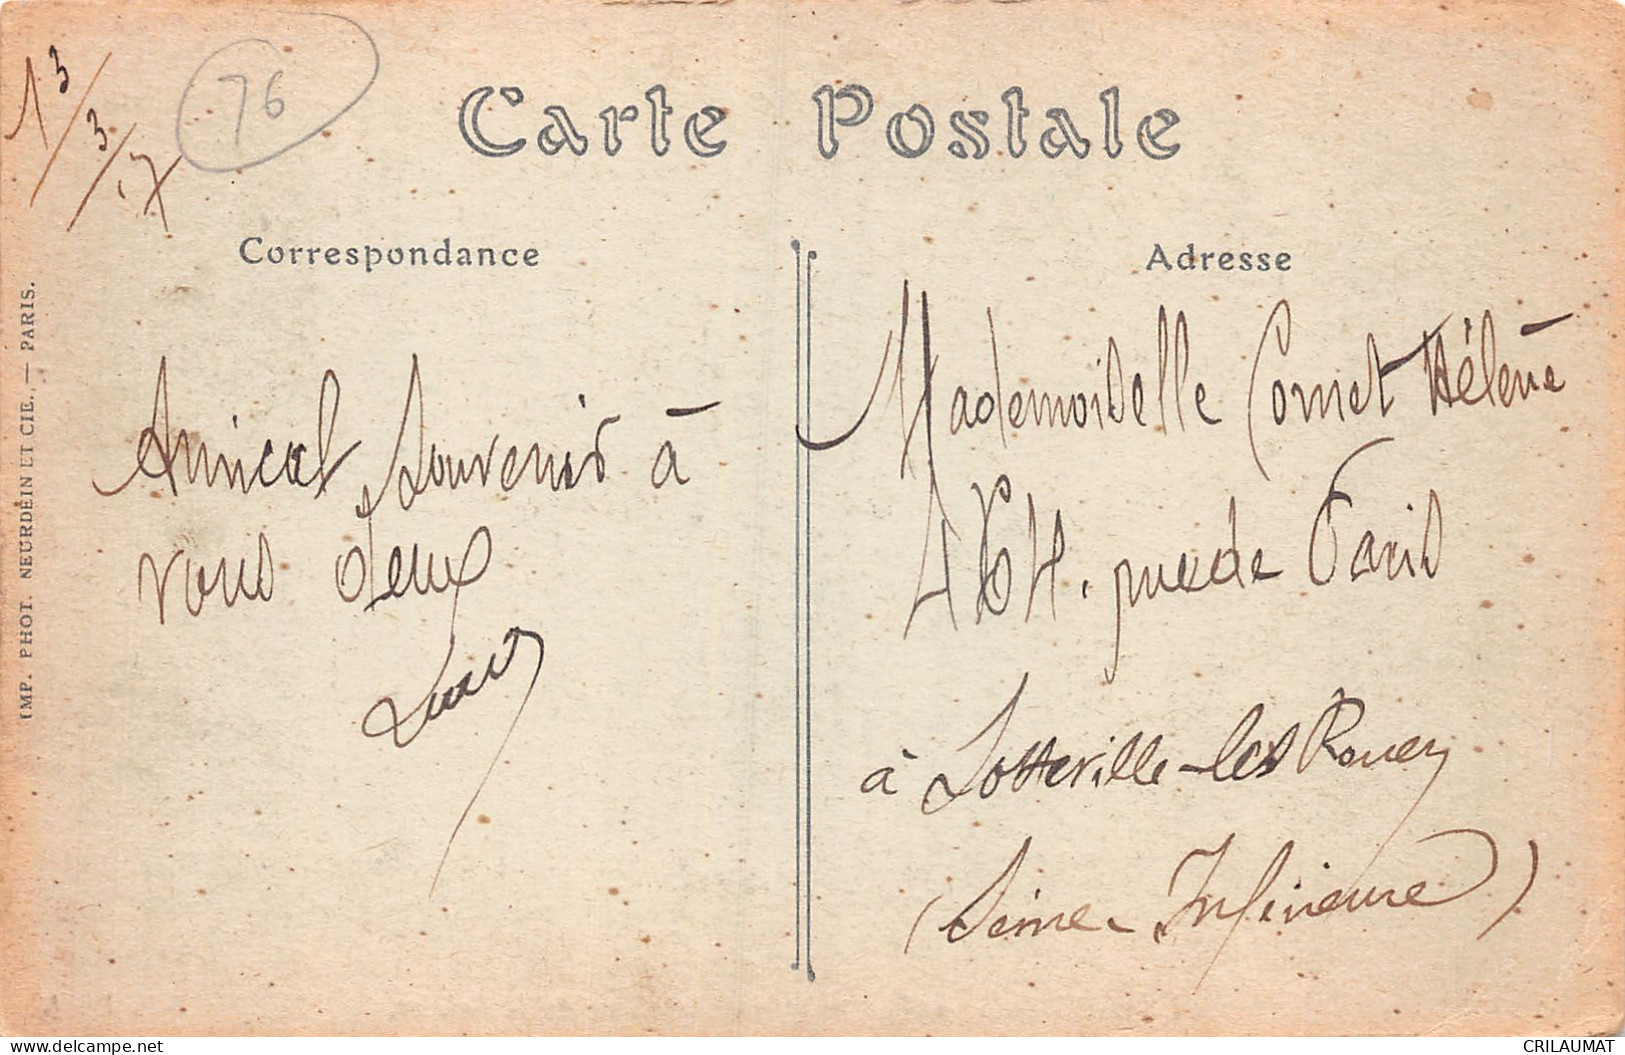 13/3/17
76
Carte Postale
Correspondance
Adresse
IMP. PHOT. NEURDEIN ET CIE. — PARIS.
Amical souvenir à
vous deux
Mademoiselle Cornet Hélène
rue de Paris
à Sotteville-les Rouen
(Seine-Inférieure)
delcampe.net
CRILAUMAT